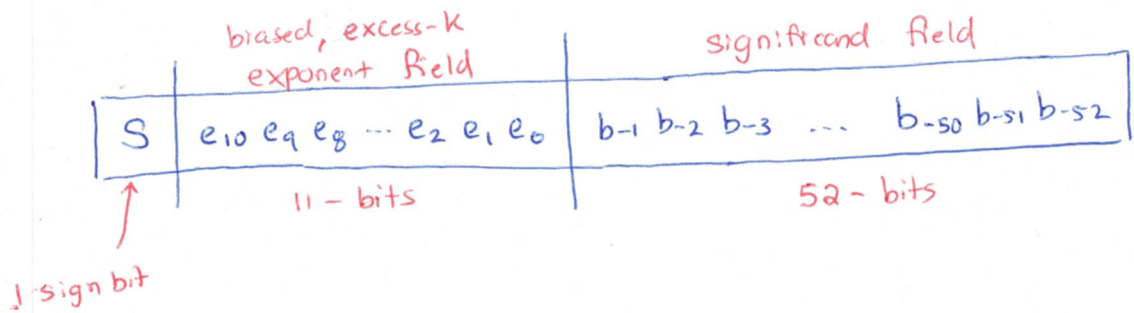 biased, excess-K
exponent field
significand field
S e10 e9 e8 ... e2 e1 e0 b-1 b-2 b-3 ... b-50 b-51 b-52
11-bits
52-bits
1 sign bit